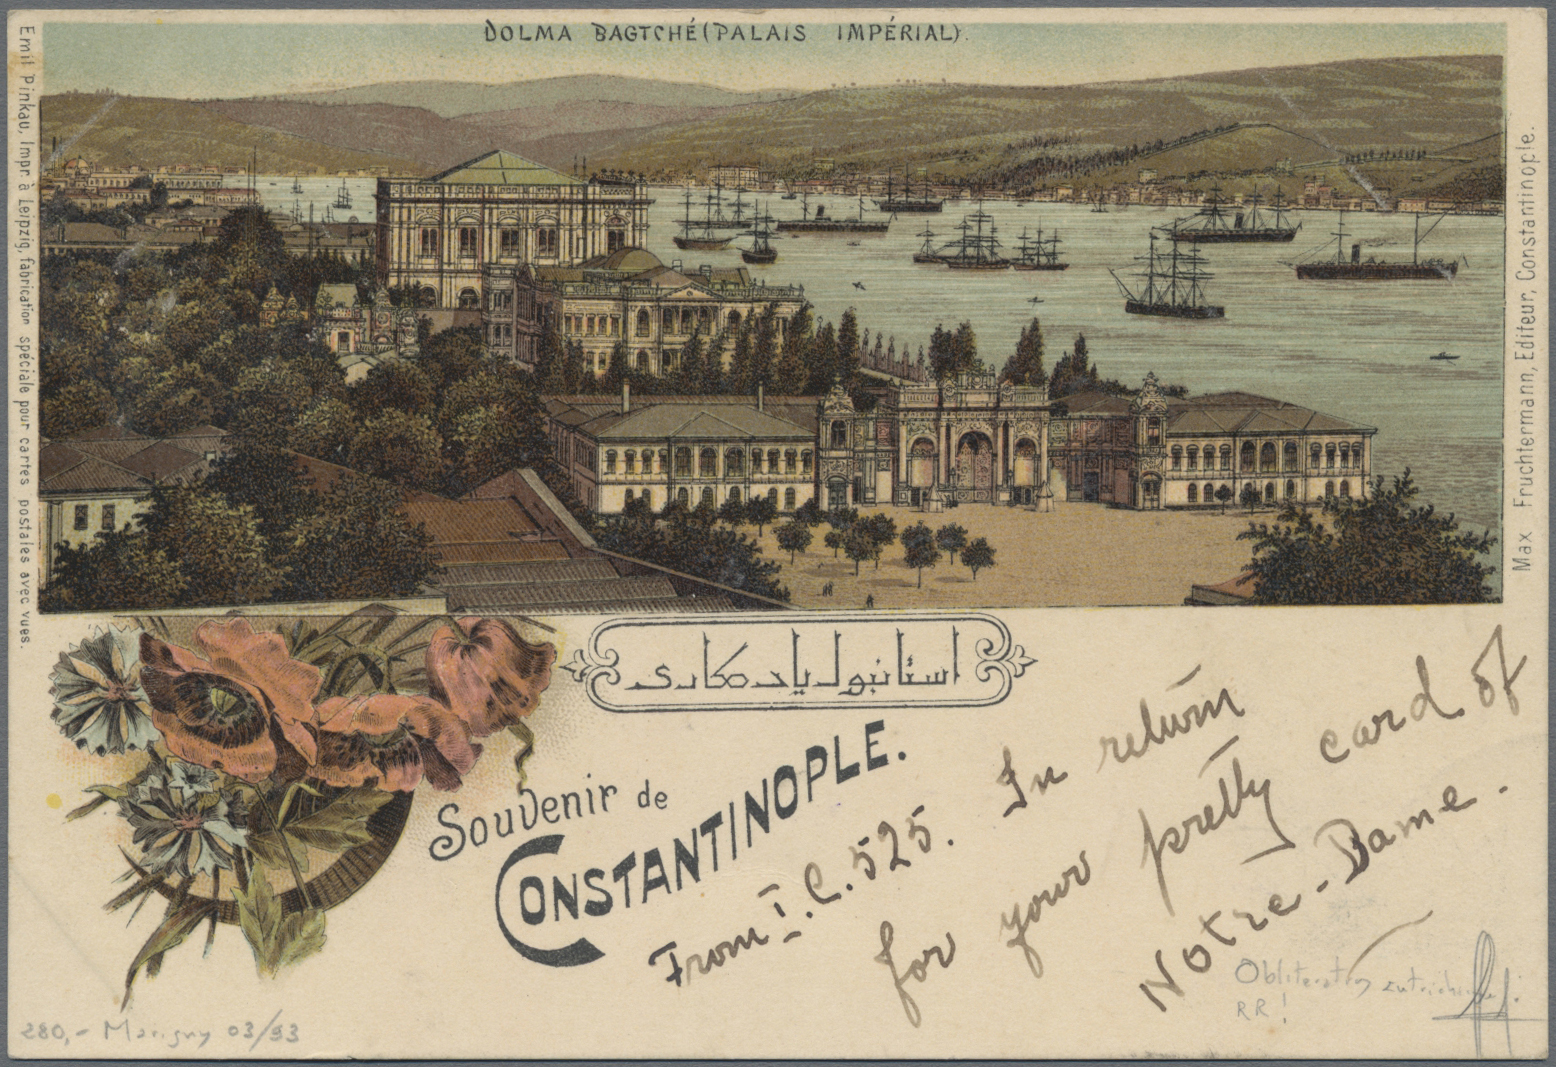 DOLMA BAGTCHÉ (PALAIS IMPÉRIAL).
Emil Pinkau, Impr. à Leipzig, fabrication spéciale pour cartes postales avec vues.
Max Fruchtermann, Editeur, Constantinople.
استانبول يادكارى
Souvenir de
CONSTANTINOPLE.
From I.C. 525. In return
for your pretty card of
Notre-Dame.
Obliteration
RR!
280,- Marigny 03/93